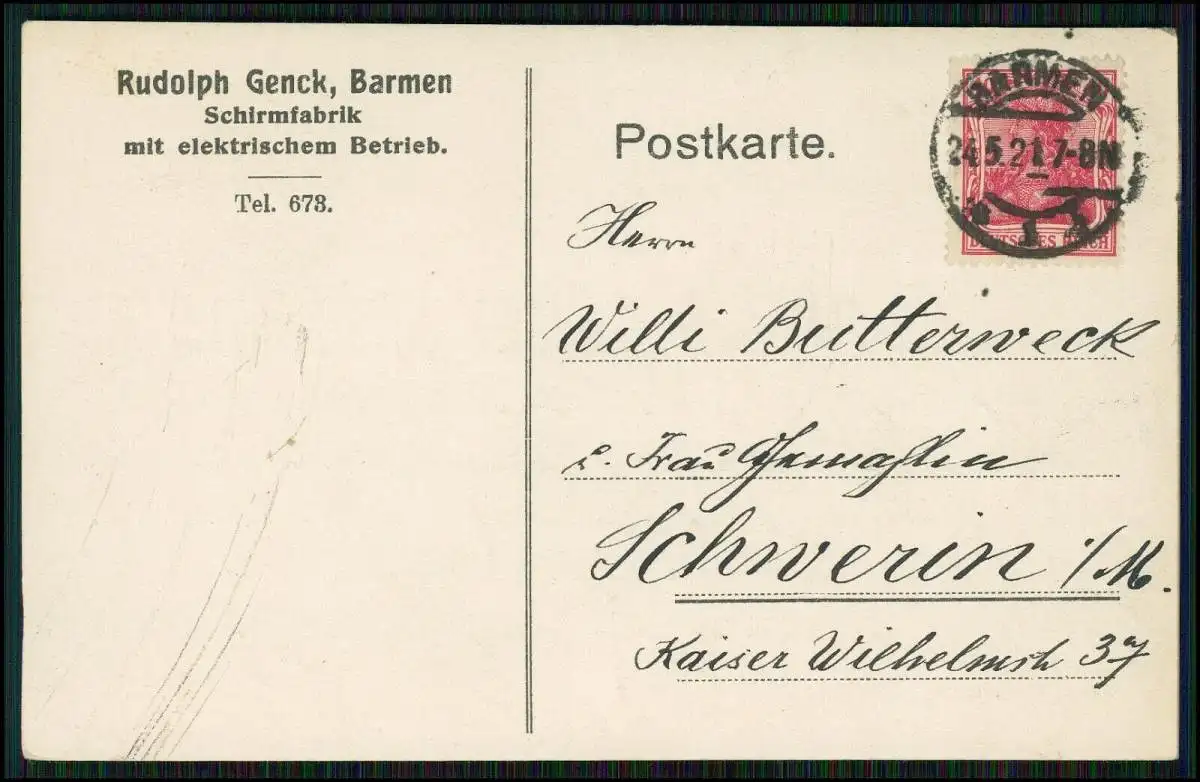 Rudolph Genck, Barmen
Schirmfabrik
mit elektrischem Betrieb.
Tel. 673.
Postkarte.
BARMEN
24.5.21.7-8N
1
DEUTSCHES REICH
Herrn
Willi Butterweck
u. Frau Gemahlin
Schwerin i/M.
Kaiser Wilhelmstr 37